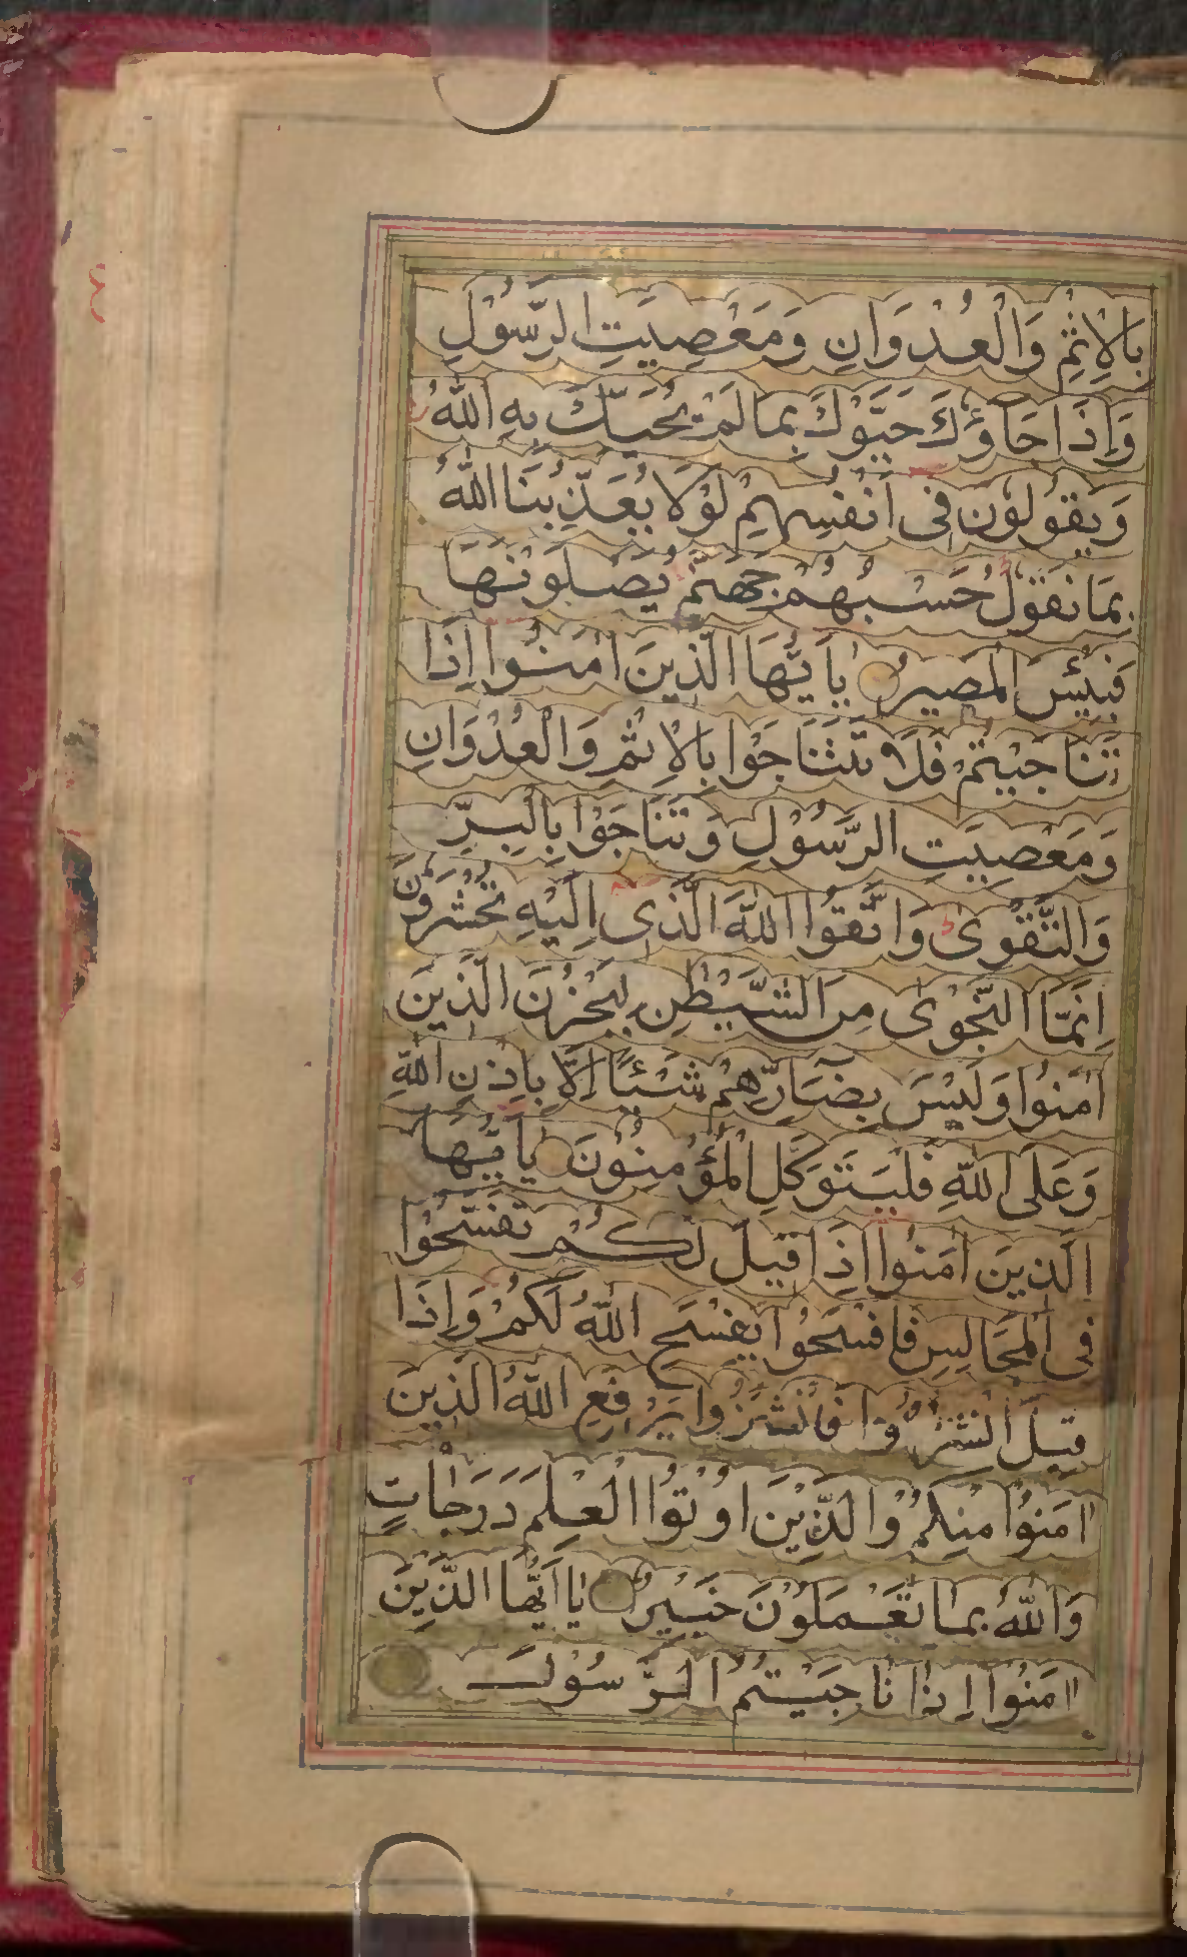 بِالْاِثْمِ وَالْعُدْوَانِ وَمَعْصِيَتِ الرَّسُوْلِ
وَاِذَا جَاؤُكَ حَيَّوْكَ بِمَا لَمْ يُحَيِّكَ بِهِ اللّٰهُ
وَيَقُوْلُوْنَ فِى اَنْفُسِهِمْ لَوْلَا يُعَذِّبُنَا اللّٰهُ
بِمَا نَقُوْلُ حَسْبُهُمْ جَهَنَّمُ يَصْلَوْنَهَا
فَبِئْسَ الْمَصِيْرُ يٰاَيُّهَا الَّذِيْنَ اٰمَنُوْا اِذَا
تَنَاجَيْتُمْ فَلَا تَتَنَاجَوْا بِالْاِثْمِ وَالْعُدْوَانِ
وَمَعْصِيَتِ الرَّسُوْلِ وَتَنَاجَوْا بِالْبِرِّ
وَالتَّقْوٰى وَاتَّقُوا اللّٰهَ الَّذِى اِلَيْهِ تُحْشَرُوْنَ
اِنَّمَا النَّجْوٰى مِنَ الشَّيْطٰنِ لِيَحْزُنَ الَّذِيْنَ
اٰمَنُوْا وَلَيْسَ بِضَارِّهِمْ شَيْئًا اِلَّا بِاِذْنِ اللّٰهِ
وَعَلَى اللّٰهِ فَلْيَتَوَكَّلِ الْمُؤْمِنُوْنَ يٰاَيُّهَا
الَّذِيْنَ اٰمَنُوْا اِذَا قِيْلَ لَكُمْ تَفَسَّحُوْا
فِى الْمَجَالِسِ فَافْسَحُوْا يَفْسَحِ اللّٰهُ لَكُمْ وَاِذَا
قِيْلَ انْشُزُوْا فَانْشُزُوْا يَرْفَعِ اللّٰهُ الَّذِيْنَ
اٰمَنُوْا مِنْكُمْ وَالَّذِيْنَ اُوْتُوا الْعِلْمَ دَرَجَاتٍ
وَاللّٰهُ بِمَا تَعْمَلُوْنَ خَبِيْرٌ يٰااَيُّهَا الَّذِيْنَ
اٰمَنُوْا اِذَا نَاجَيْتُمُ الرَّسُوْلَ